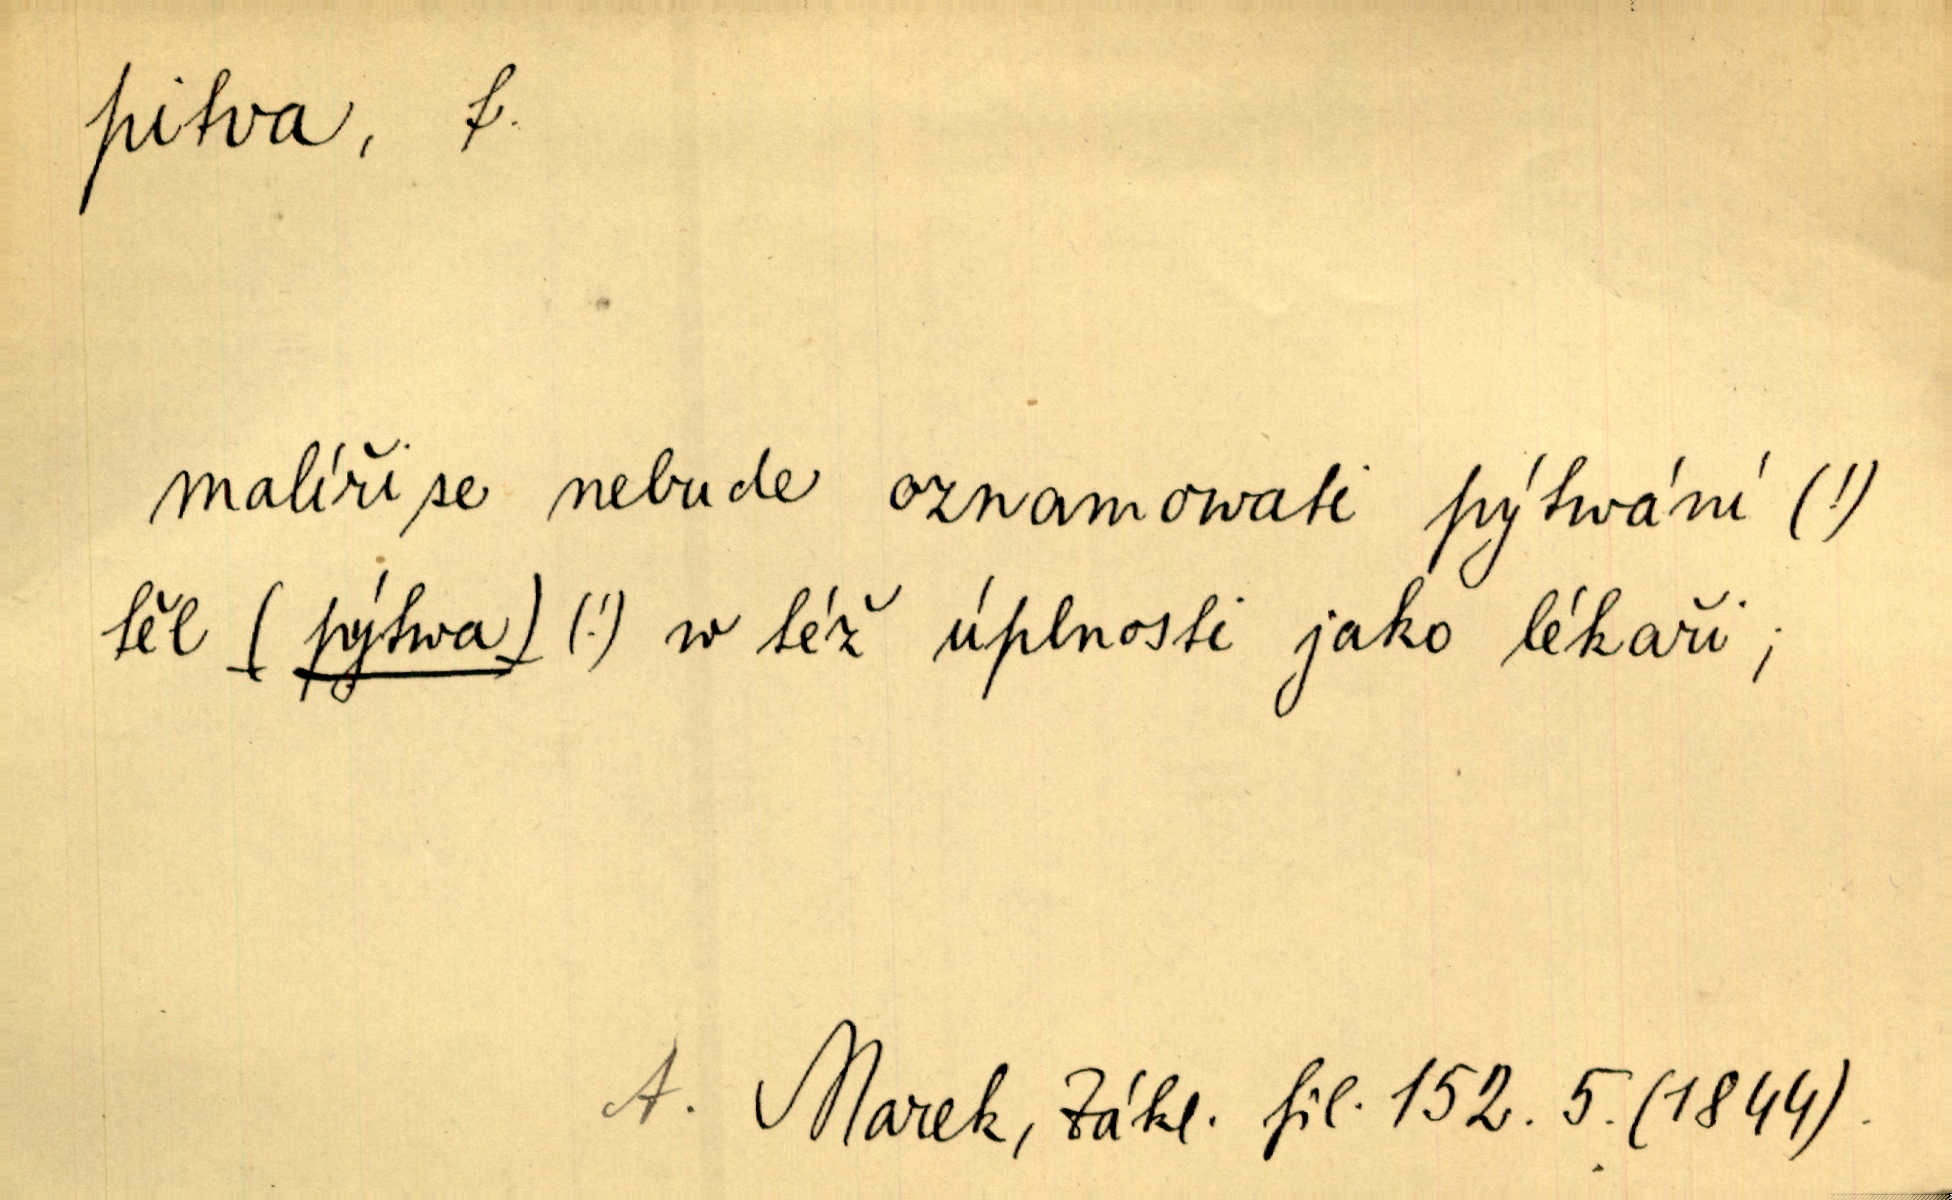 pitva, f.
malíři se nebude oznamowati pýtwání (!)
těl (pýtwa) (!) w též úplnosti jako lékaři;
A. Marek, Zákl. fil. 152. 5. (1844).